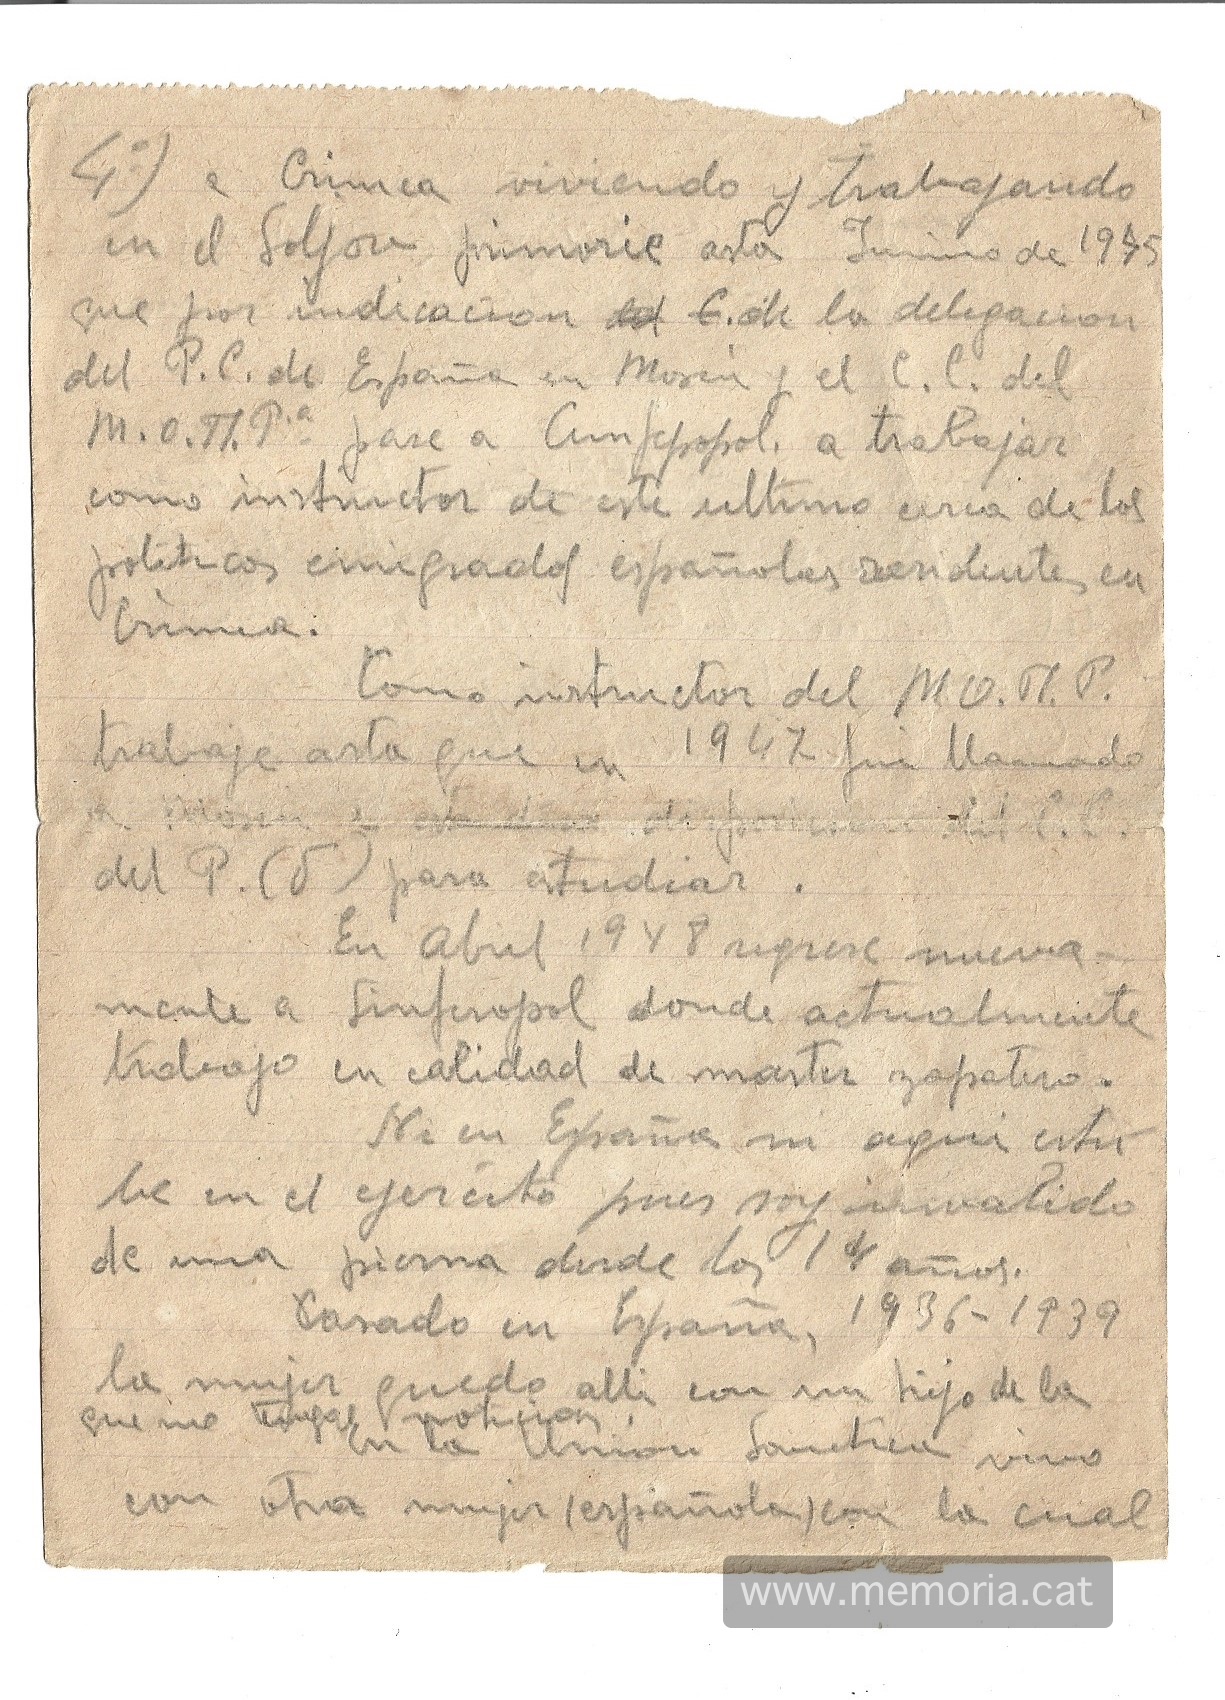 4º) a Crimea viviendo y trabajando
en el primorie asta Junio de 1945
que por indicacion de la delegacion
del P.C. de España en Moscu y el C.C. del
M.O.П.P.ª pase a a trabajar
como instructor de este ultimo cerca de los
politicos emigrados españoles residentes en
Crimea.
Como instructor del M.O.П.P.
trabaje asta que en 1947 fui llamado
a Moscu a disposicion del C.C.
del P.(б) para estudiar.
En Abril 1948 regrese nueva-
mente a Sinferopol donde actualmente
trabajo en calidad de master zapatero.
Ni en España ni aqui estu
be en el ejercito pues soy invalido
de una pierna desde los 14 años.
Casado en España, 1936-1939
la mujer quedo alli con un hijo de la
que no tengo noticias.
En la Union Sovietica vivo
con otra mujer (española) con la cual
www.memoria.cat